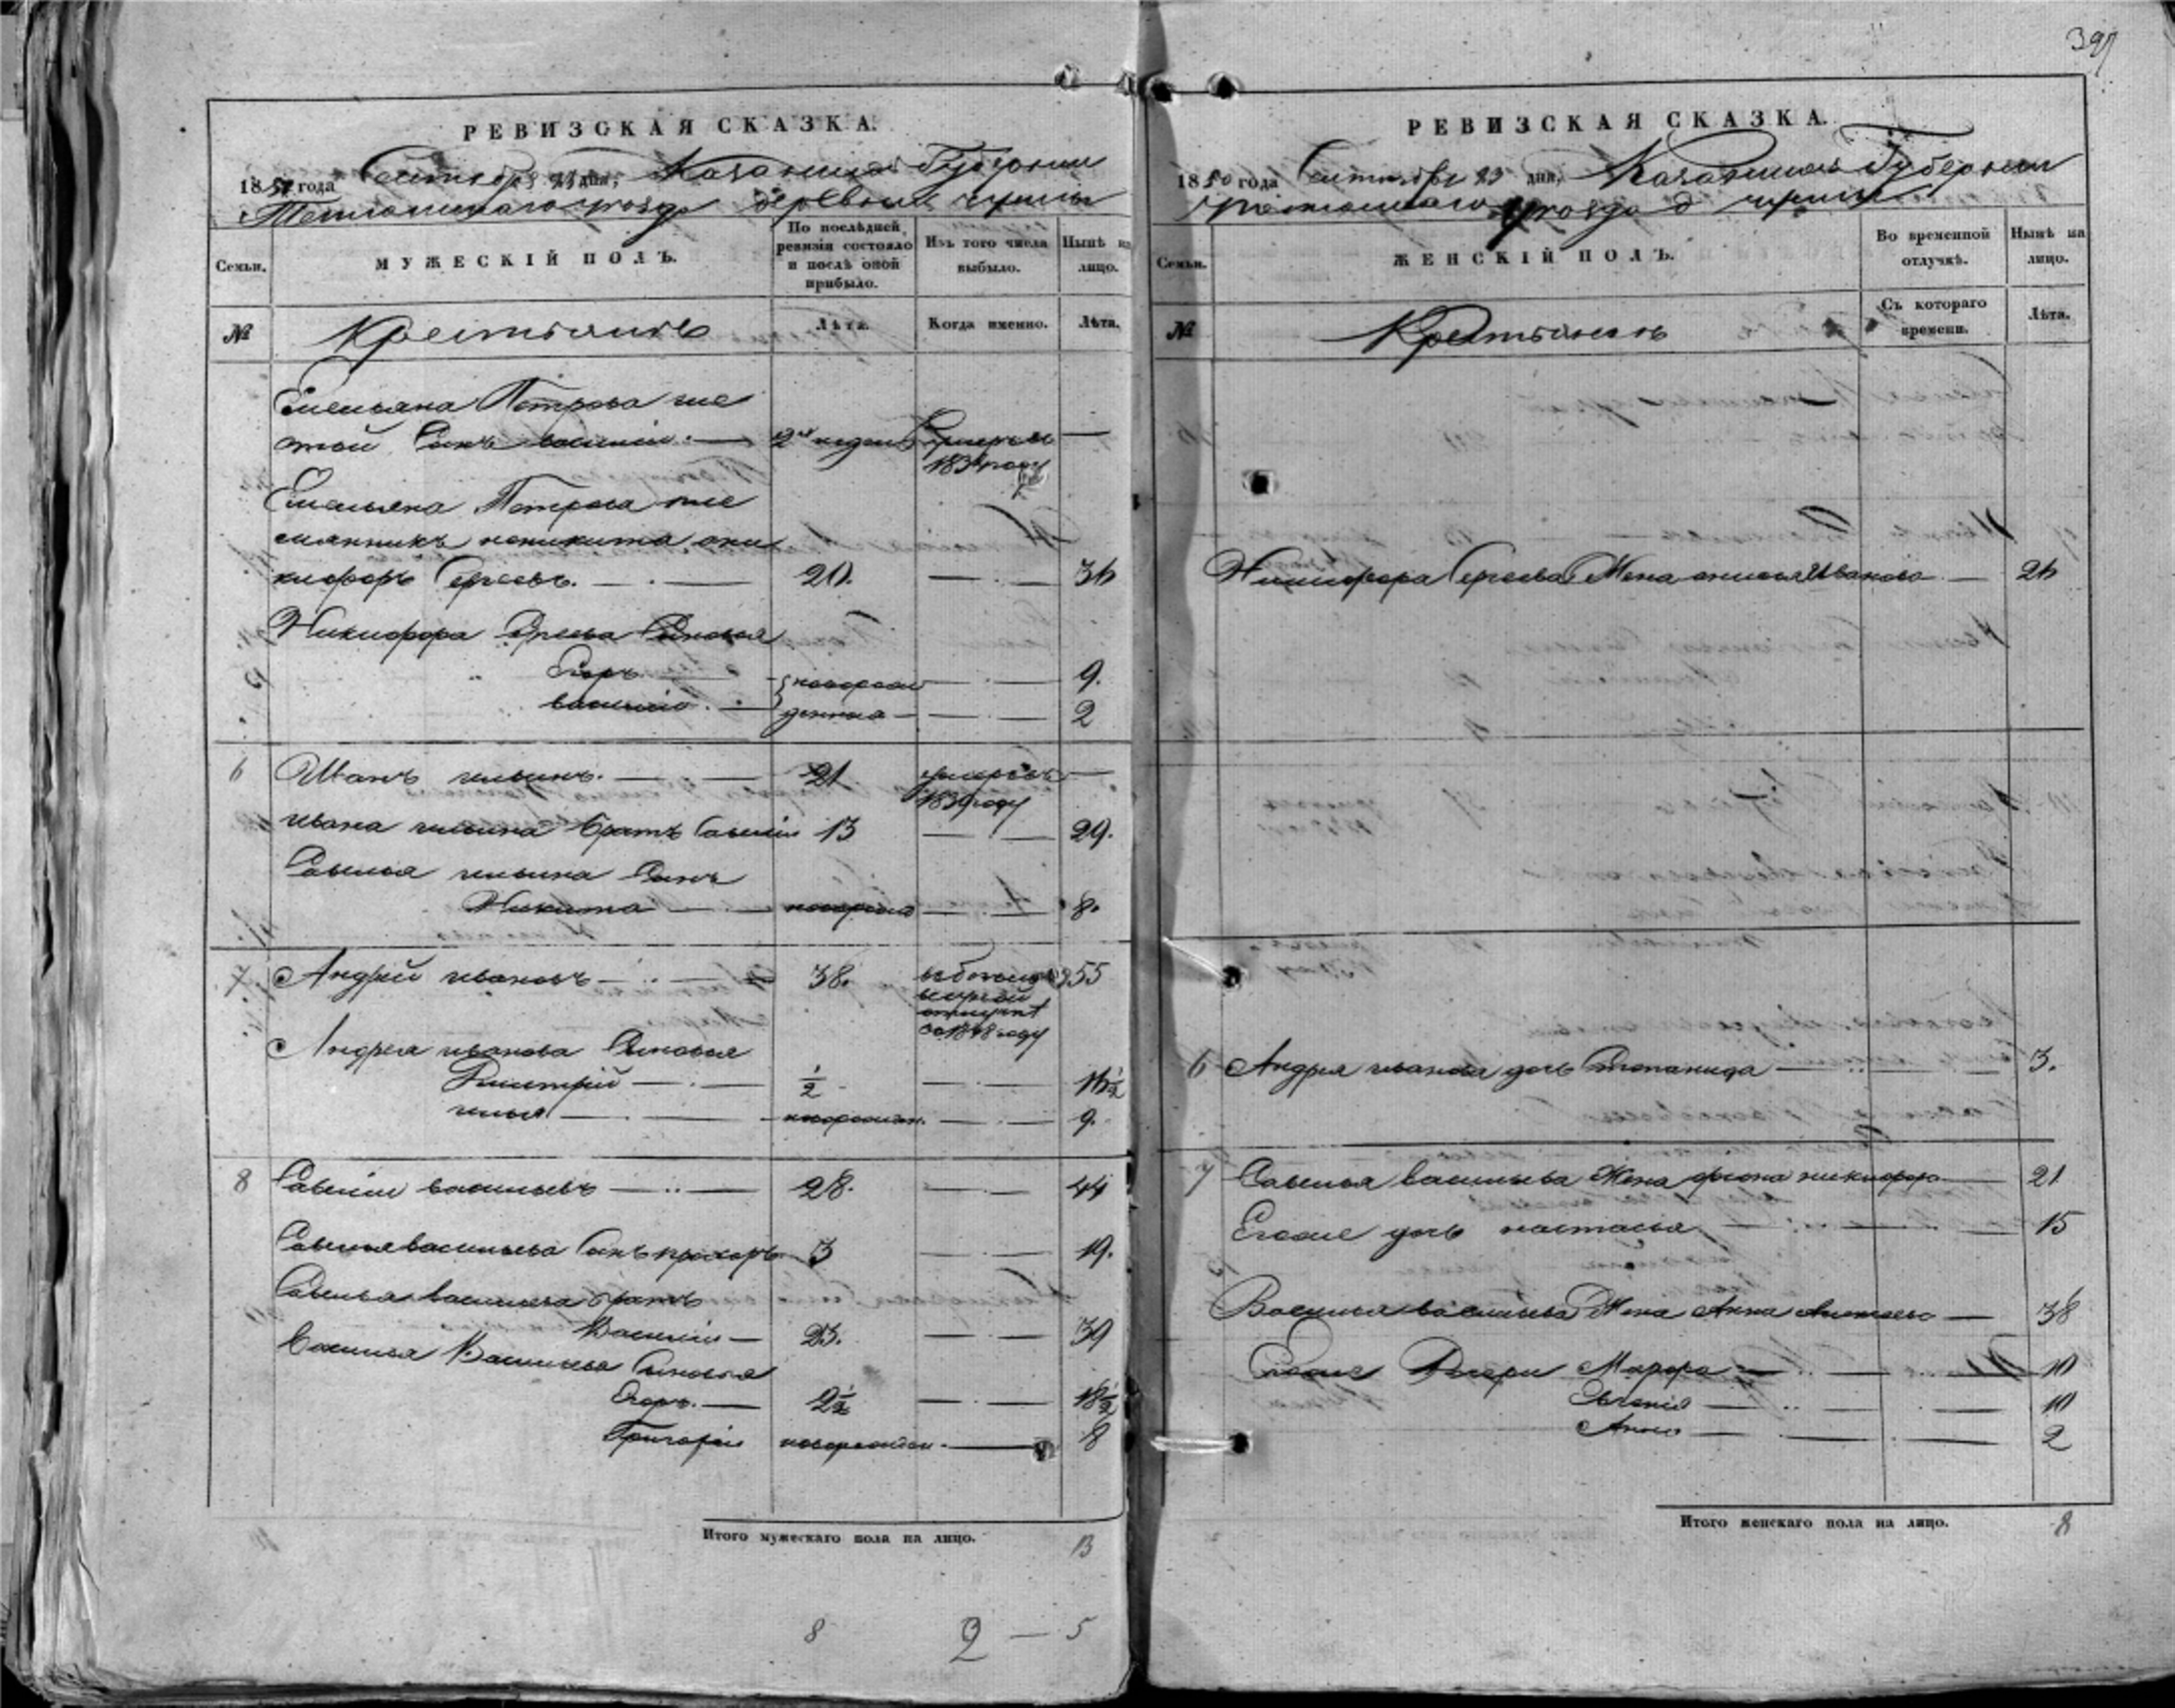 397
РЕВИЗСКАЯ СКАЗКА.
1850 года Сентября 23 дня, Казанской Губернии
Тетюшскаго уезда деревни
Семьи.
МУЖЕСКІЙ ПОЛЪ.
По послѣдней ревизіи состояло и послѣ оной прибыло.
Изъ того числа выбыло.
Нынѣ на лицо.
№
Крестьянъ
Лѣта.
Когда именно.
Лѣта.
Емельяна Петрова ше
той Сынъ василій — 2 недель умеръ въ —
1834 году
Емельяна Петрова пле
мянникъ
кифоръ Сергеевъ. — 20. — 36
Никифора Сергеева Сыновья
Егоръ новорож — 9.
василій. денныя — 2
6 Иванъ ильинъ. — 21 умеръ въ —
1839 году
ивана ильина братъ Савелій 13 — 29.
Савелья ильина Сынъ
Никита — новорож — 8.
7 Андрей ивановъ — 38. 55
во 1848 году
Андрея иванова Сыновья
Дмитрій — 1/2 — 16 1/2
илья — новорожден. — 9.
8 Савелій васильевъ — 28. — 44
Савелья васильева Сынъ прохоръ 3 — 19.
Савелья васильева братъ
Василій — 23. — 39
Василья Васильева Сыновья
Егоръ. — 2 1/2 — 18 1/2
Григорій новорожден. — 8
Итого мужескаго пола на лицо. 13
8 2 — 5
РЕВИЗСКАЯ СКАЗКА.
1850 года Сентября 23 дня, Казанской Губернии
Тетюшскаго уезда д
Семьи.
ЖЕНСКІЙ ПОЛЪ.
Во временной отлучкѣ.
Нынѣ на лицо.
№
Крестьянъ
Съ котораго времени.
Лѣта.
Никифора Сергеева Жена анисья Иванова — 26
6 Андрея иванова дочь Степанида — 3.
7 Савелья васильева Жена фиона никифоро — 21
Егоже дочь настасья — 15
Василья васильева Жена Анна Алексеева — 38
Егоже Дочери Марфа — 10
Евгенія — 10
Анна — 2
Итого женскаго пола на лицо. 8